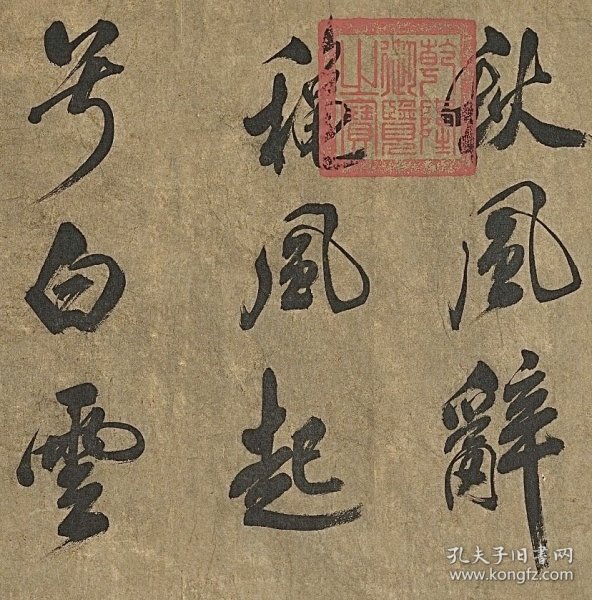 秋風辭
秋風起
兮白雲
乾隆御覽之寶
孔夫子旧书网
www.kongfz.com